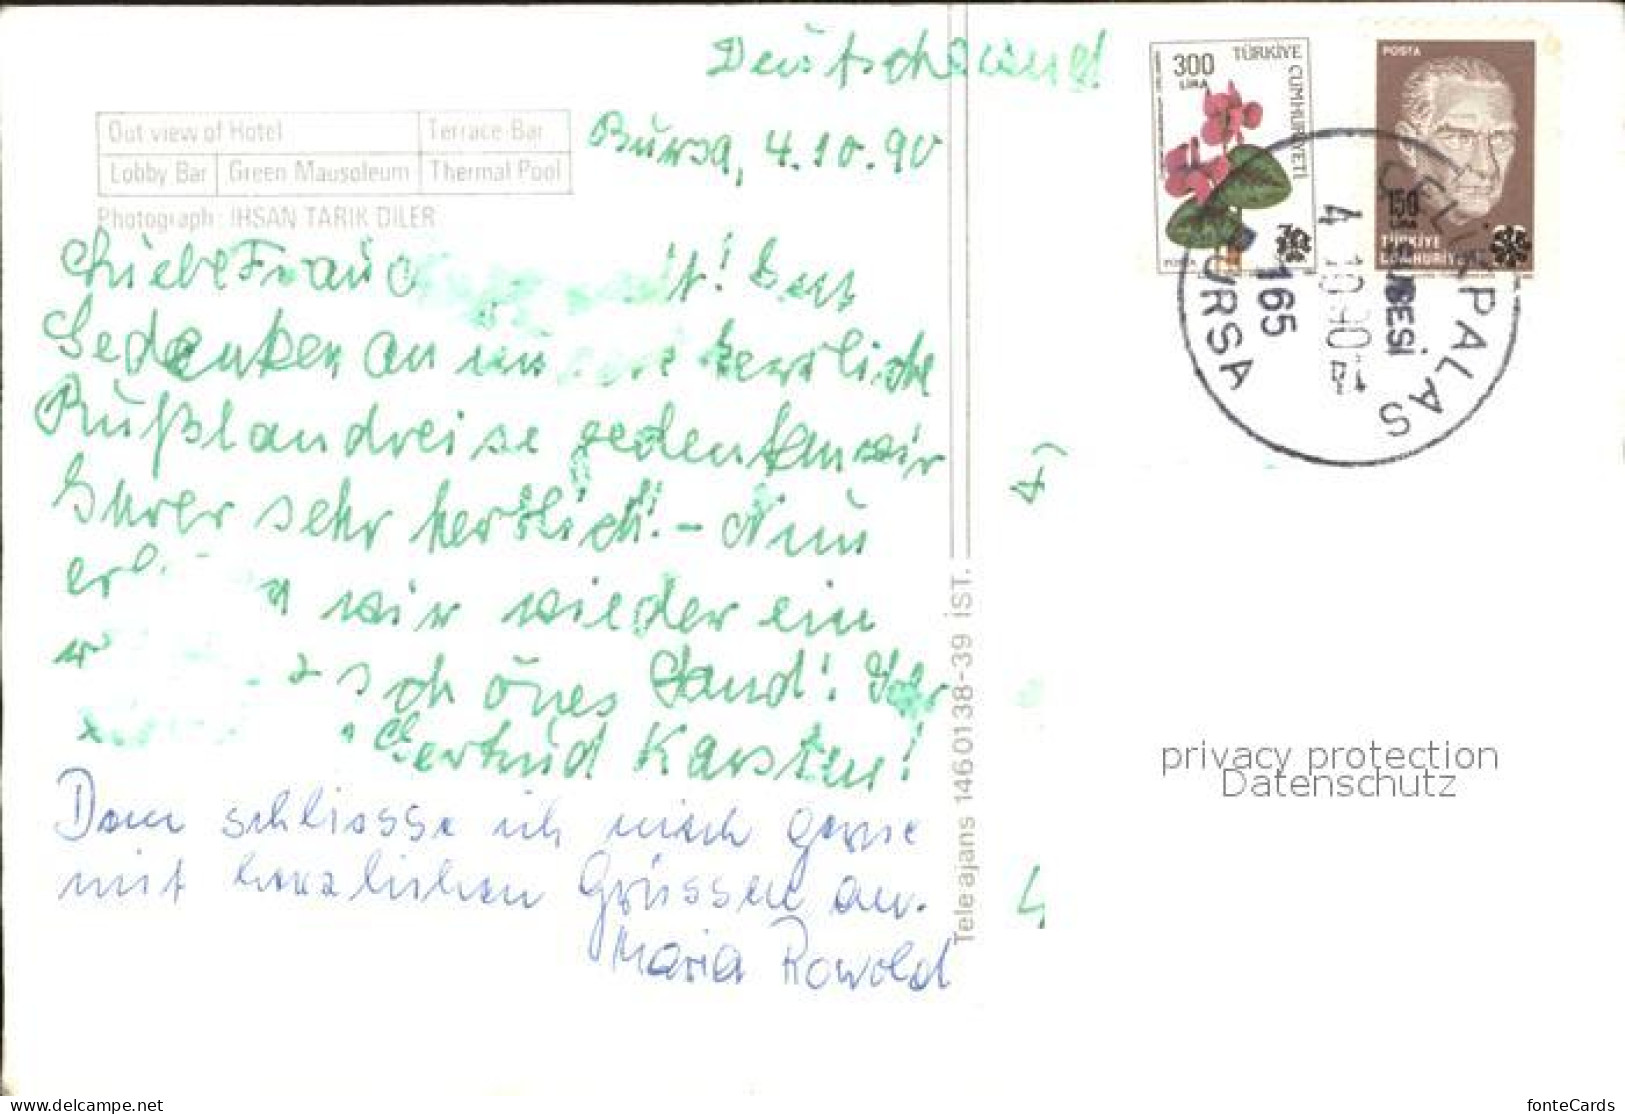 Deutschland
Bursa, 4.10.90
Out view of Hotel Terrace Bar
Lobby Bar Green Mausoleum Thermal Pool
Photograph: İHSAN TARIK DİLER
Liebe Frau
Gedanken an herrliche
Rußlandreise gedenken wir
Ihrer sehr herzlich! - Nun
wir wieder ein
schönes Land! Ihre
Gertrud Karsten!
Dem schliesse ich mich gerne
mit herzlichen Grüssen an.
Maria Rowold
Tele ajans 1460138-39 İST.
300
LİRA
TÜRKİYE CUMHURİYETİ
POSTA
POSTA
150
TÜRKİYE
CUMHURİYETİ
PALAS
ŞUBESİ
4 10 90
165
BURSA
4
privacy protection
Datenschutz
https://www.delcampe.net
fonteCards